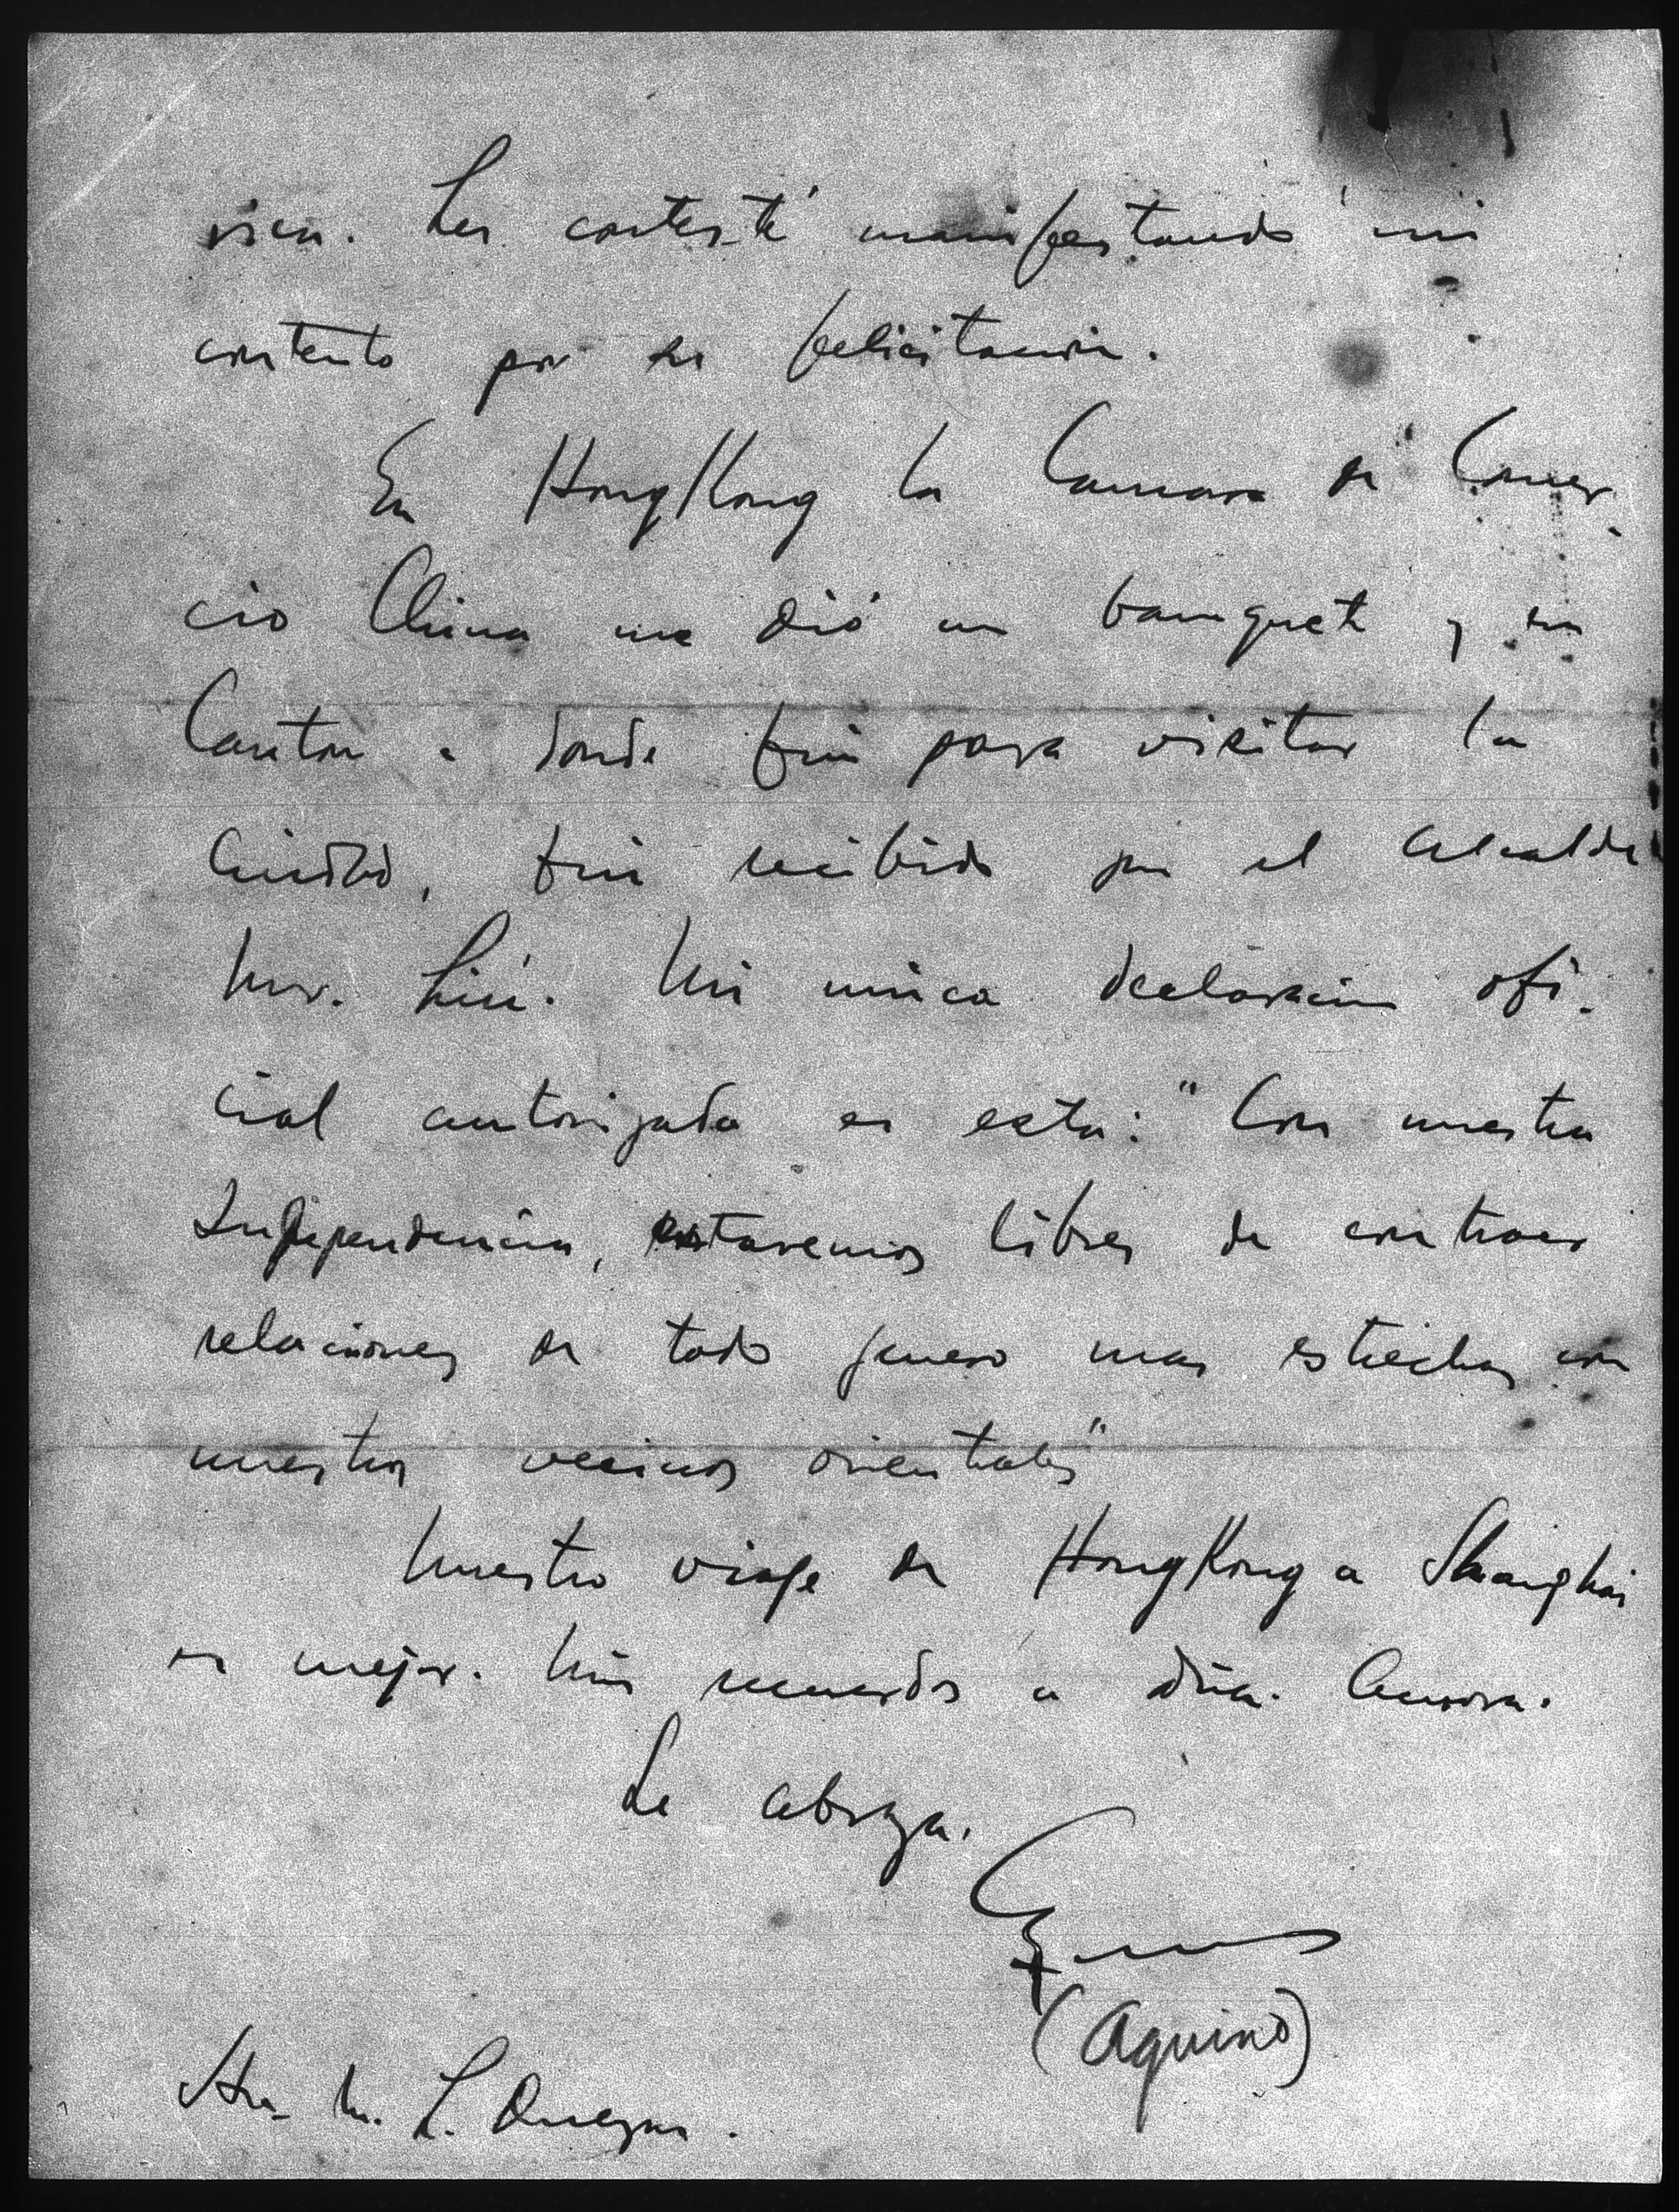 rica. Les contesté manifestando mi
contento por su felicitacion.
En HongKong la Camara de Comer-
cio China me dió un banquete y en
Canton a donde fui para visitar la
Ciudad, fui recibido por el alcalde
Mr. Liu. Mi unica declaracion ofi-
cial autorizada es esta: "Con nuestra
Independencia, estaremos libres de contraer
relaciones de todo genero mas estrechas con
nuestros vecinos orientales"
Nuestro viaje de HongKong a Shanghai
es mejor. Mis recuerdos a dña. Aurora.
Le abraza,
(Aquino)
M. L. Quezon.